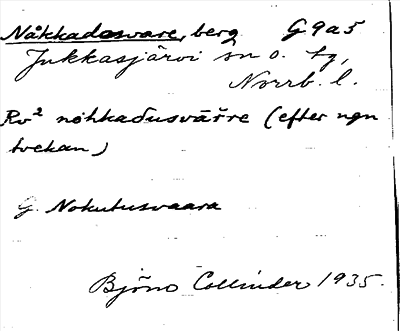 Nåkkadasvare, berg G9a5
Jukkasjärvi sn o. tg,
Norrb. l.
Rv² nǻhkađusvār̄re (efter ngn
tvekan)
G. Nokutusvaara
Björn Collinder 1935.